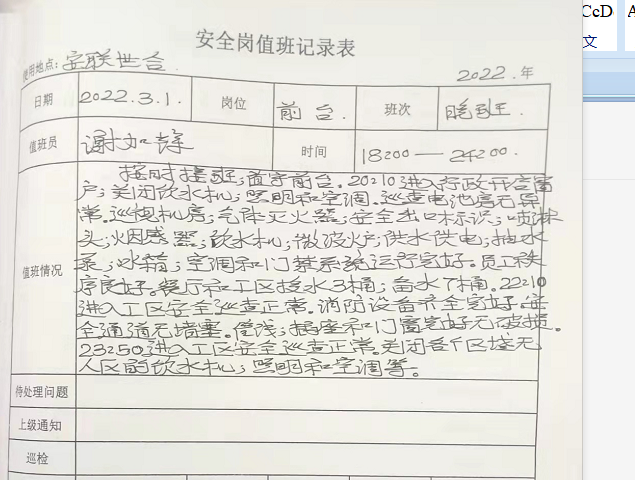 CcD
A
文
安全岗值班记录表
使用地点：安联世合
2022.年
日期 2022.3.1. 岗位 前台. 班次 晚班.
值班员 谢如锋 时间 18:00—24:00.
值班情况
按时接班；首守前台.20:10进入行政开信窗
户；关闭饮水机；照明和空调.巡查电池房无异
常.巡视机房；气体灭火器；安全出口标识；喷淋
头；烟感器；饮水机；微波炉；供水供电；抽水
泵；冰箱；空调和门禁系统运行完好.员工秩
序良好.餐厅和工区接水3桶；备水7桶.22:10
进入工区安全巡查正常.消防设备齐全完好.安
全通道无堵塞.玻璃和门窗完好无破损.
23:50进入工区安全巡查正常.关闭各个区域无
人区的饮水机；照明和空调等。
待处理问题
上级通知
巡检